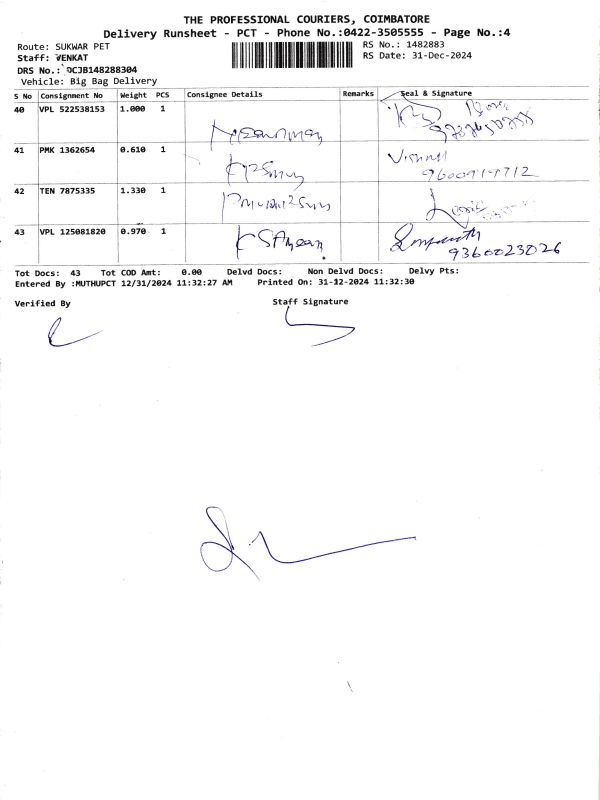 THE PROFESSIONAL COURIERS, COIMBATORE
Delivery Runsheet - PCT - Phone No.:0422-3505555 - Page No.:4
Route: SUKWAR PET
RS No.: 1482883
Staff: VENKAT
RS Date: 31-Dec-2024
DRS No.: OCJB148288304
Vehicle: Big Bag Delivery
S No Consignment No Weight PCS Consignee Details Remarks Seal & Signature
40 VPL 522538153 1.000 1
41 PMK 1362654 0.610 1
9600919712
42 TEN 7875335 1.330 1
43 VPL 125081820 0.970 1
9360023026
Tot Docs: 43 Tot COD Amt: 0.00 Delvd Docs: Non Delvd Docs: Delvy Pts:
Entered By :MUTHUPCT 12/31/2024 11:32:27 AM Printed On: 31-12-2024 11:32:30
Verified By
Staff Signature